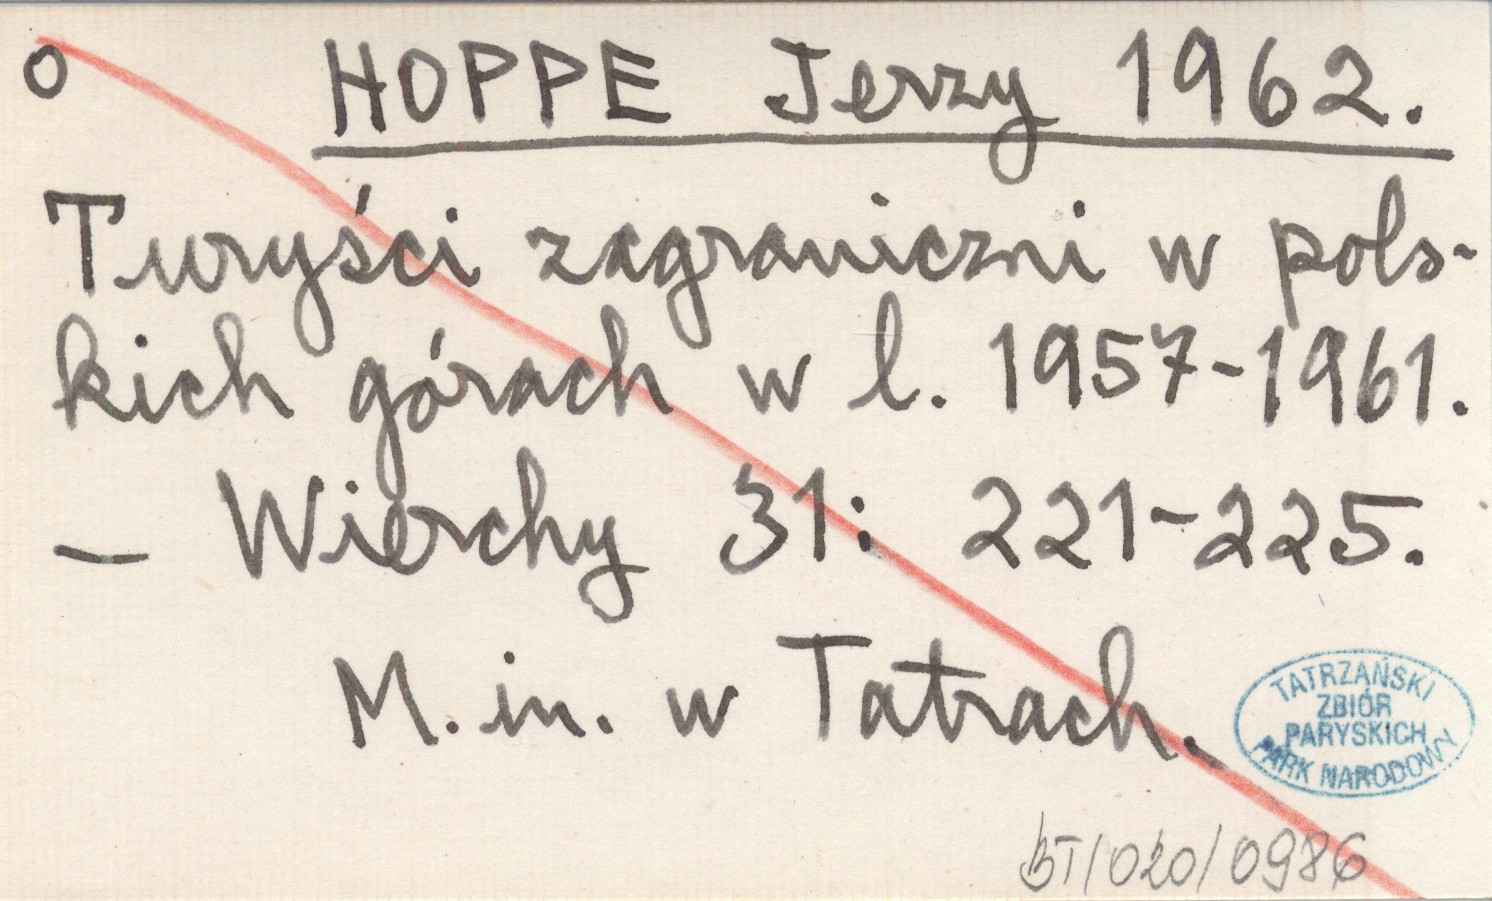 o HOPPE Jerzy 1962.
Turyści zagraniczni w pols-
kich górach w l. 1957-1961.
— Wierchy 31: 221-225.
M. in. w Tatrach.
TATRZAŃSKI
ZBIÓR
PARYSKICH
PARK NARODOWY
BT/020/0986